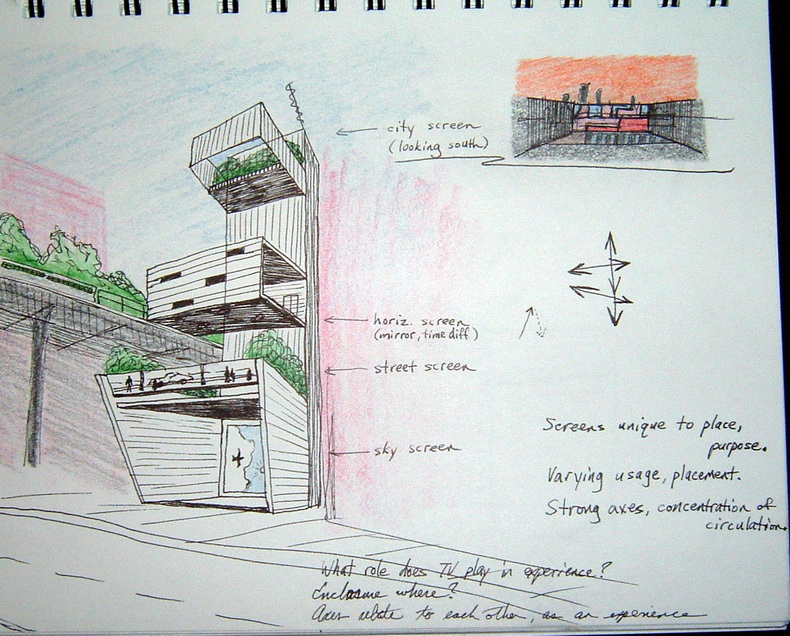 city screen
(looking south)
horiz. screen
(mirror, time diff.)
street screen
sky screen
Screens unique to place,
purpose.
Varying usage, placement.
Strong axes, concentration of
circulation.
What role does TV play in experience?
Enclosure where?
Axes relate to each other, as an experience